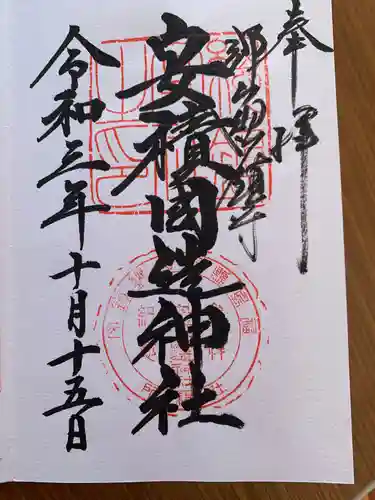 奉拝
郡山總鎮守
安積国造神社
令和三年十月十五日